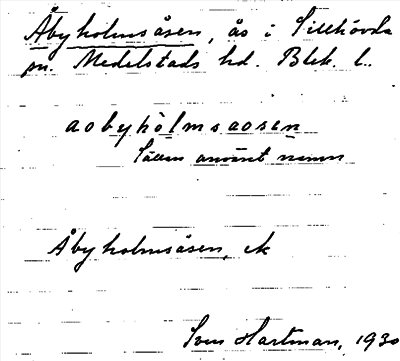 Åbyholmsåsen, ås i Sillhövda
sn. Medelstads hd. Blek. l..
aobyhòlmsaosen
Sällan använt namn
Åbyholmsåsen, ek
Sven Hartman, 1930